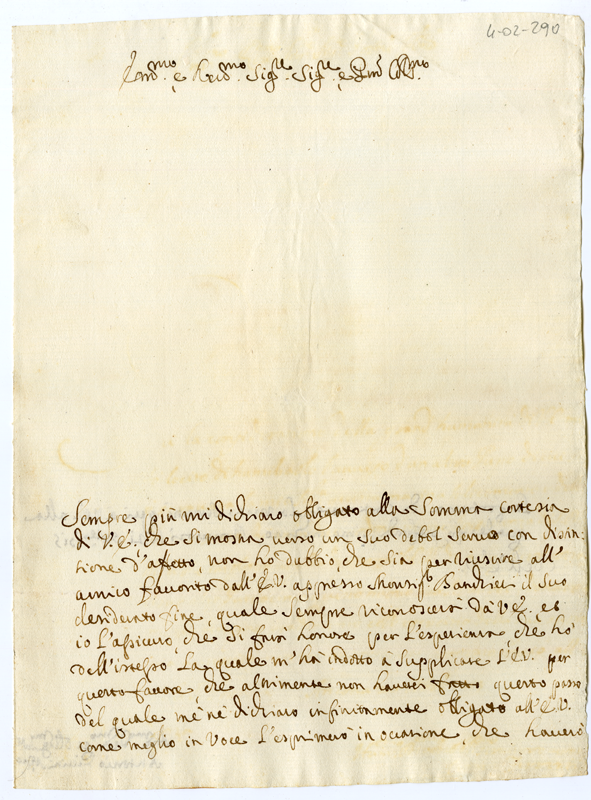 4-02-290
Em.mo e Rev.mo Sig.re Sig.re e P.ron Col.mo
Sempre più mi dichiaro obbligato alla Somma cortesia
di V.E. che si mostra verso un Suo debol servo con distin-
tione d'affetto, non ho dubbio, che sia per riuscire all'
amico favorito dall'E.V. appresso Monsig.r Bandieri il Suo
desiderato fine, quale sempre riconoscerà da V.E. et
io L'assicuro, che si farà honore per L'esperienza, che hò
dell'istesso La quale m'hà indotto à supplicare L'E.V. per
questo favore, che altrimente non haverei fatto questo passo
del quale mè ne dichiaro infinitamente obligato all'E.V.
come meglio in voce L'esprimerò in occasione, che haverò